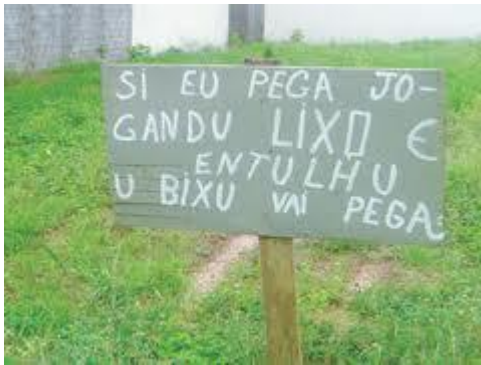 SI EU PEGA JO-
GANDU LIXO E
ENTULHU
U BIXU VAI PEGA